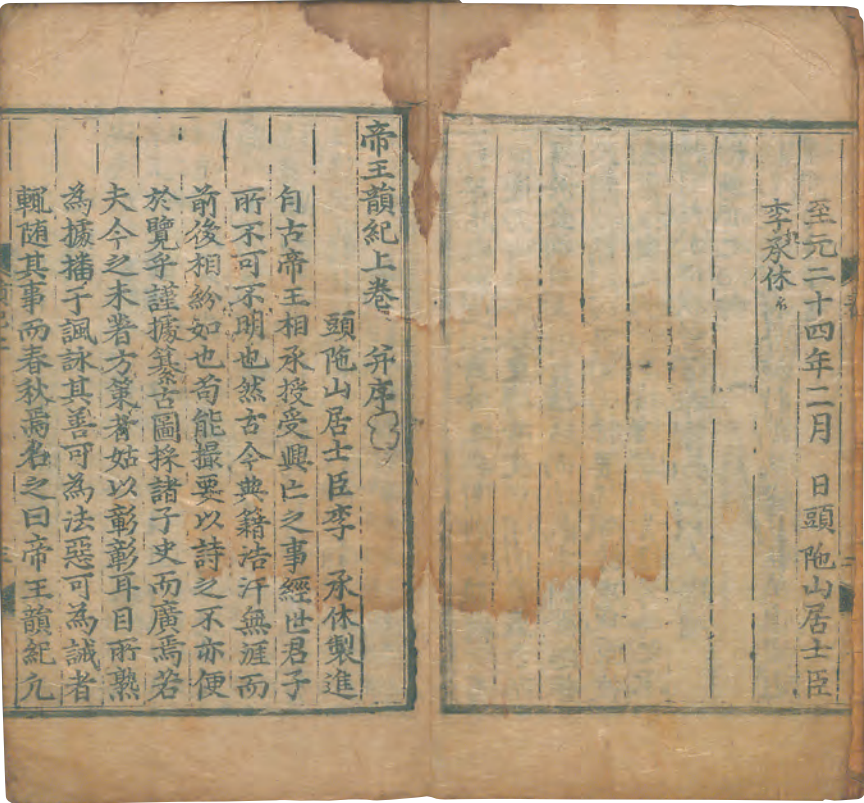 至元二十四年二月 日頭陁山居士臣
李承休
帝王韻紀上卷 并序
頭陁山居士臣李 承休製進
自古帝王相承授受興亡之事經世君子
所不可不明也然古今典籍浩汗無涯而
前後相紛如也苟能撮要以詩之不亦便
於覽乎謹據纂古圖採諸子史而廣焉若
夫今之未著方策者姑以彰彰耳目所熟
為據播于諷詠其善可為法惡可為誡者
輒随其事而春秋焉名之曰帝王韻紀凡